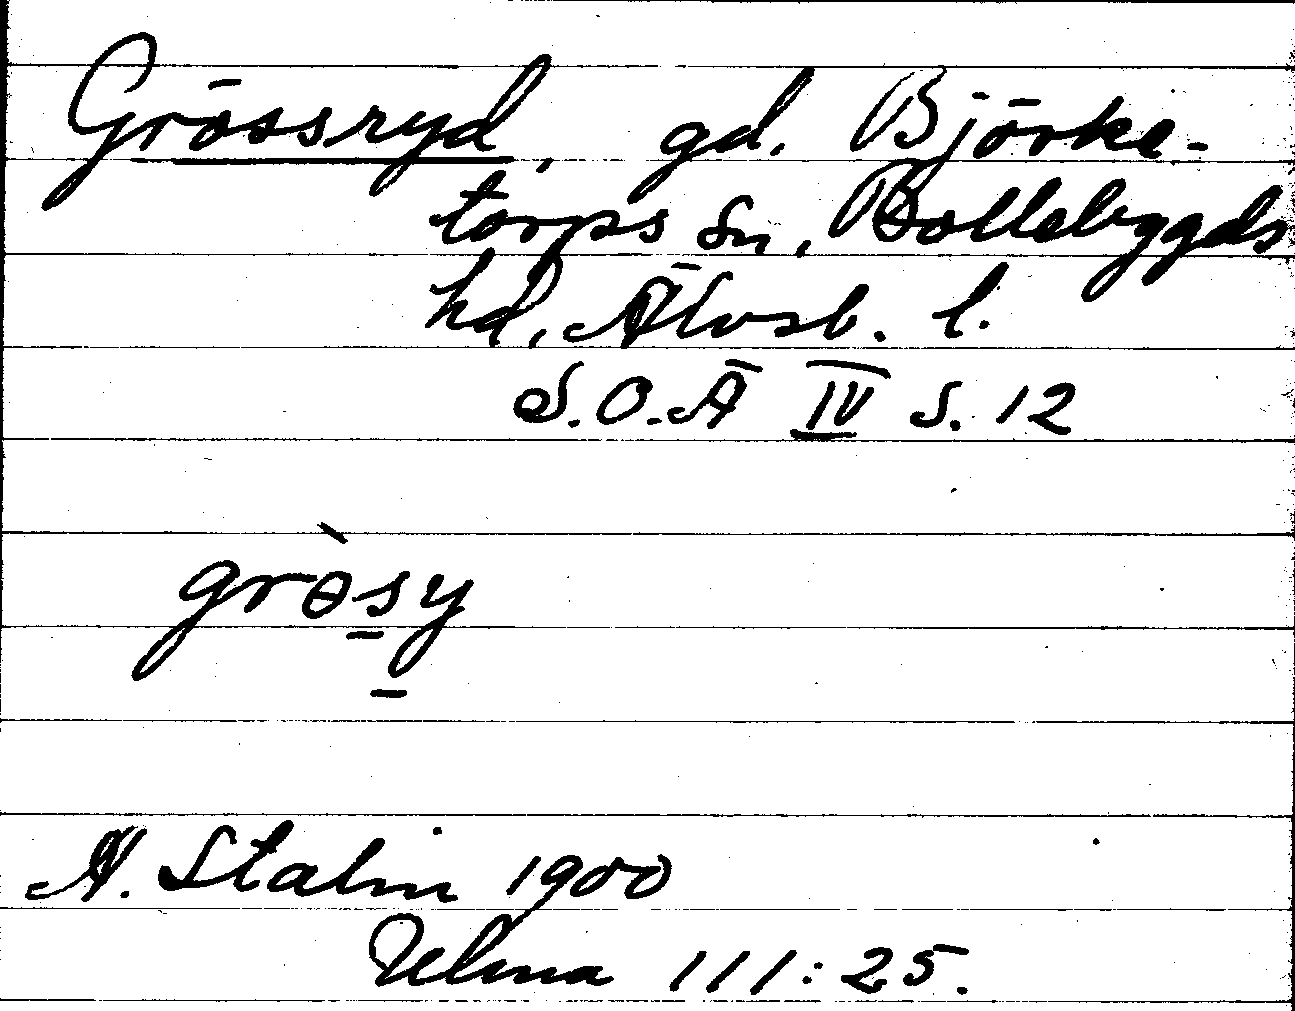 Grössryd, gd. Björke-
torps sn, Bollebygds
hd, Älvsb. l.
S.O.Ä IV s. 12
grɵ̀sy
A. Stalin 1900
Ulma 111:25.